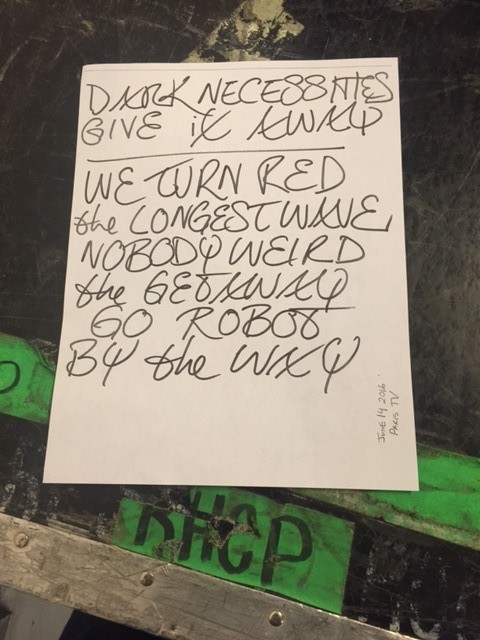 DARK NECESSITIES
GIVE iT AWAY
WE TURN RED
the LONGEST WAVE
NOBODY WEIRD
the GETAWAY
GO ROBOT
BY the WAY
JUNE 14 2016
PARIS TV
RHCP